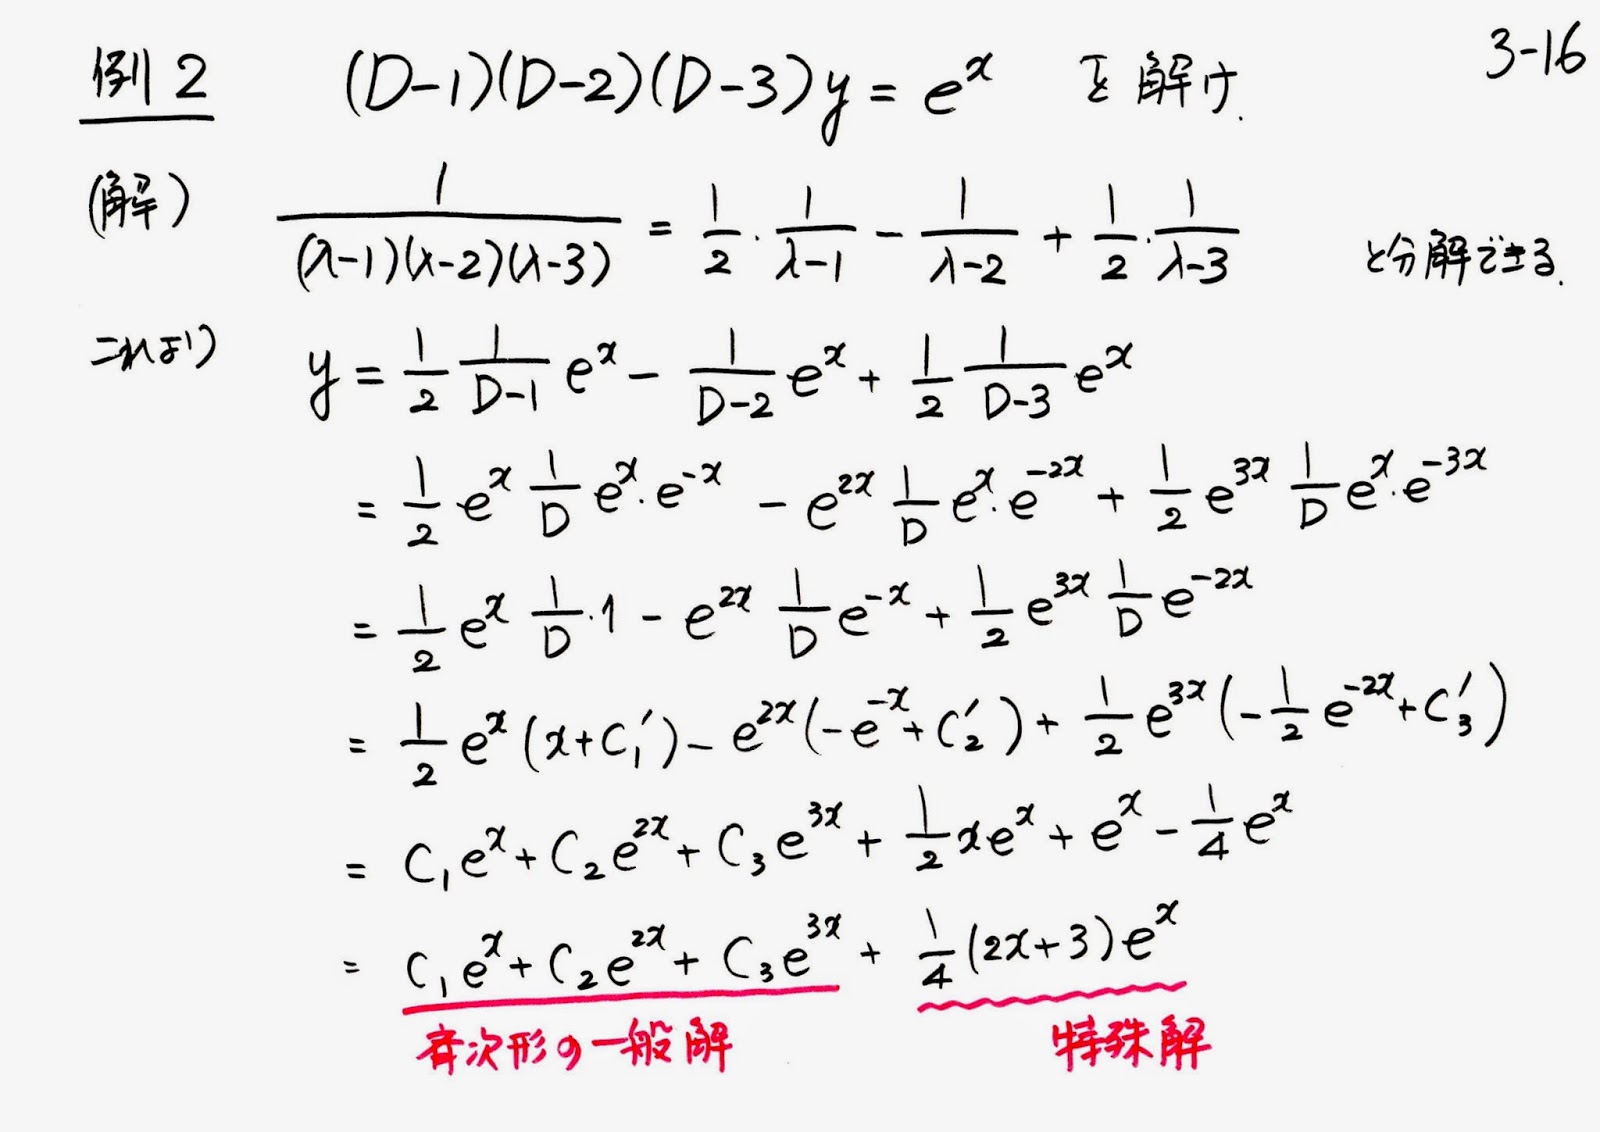 3-16
例2 (D-1)(D-2)(D-3)y = e^x を解け.
(解) 1/((λ-1)(λ-2)(λ-3)) = 1/2・1/(λ-1) - 1/(λ-2) + 1/2・1/(λ-3) と分解できる.
これより y = 1/2 1/(D-1) e^x - 1/(D-2) e^x + 1/2 1/(D-3) e^x
= 1/2 e^x 1/D e^x・e^{-x} - e^{2x} 1/D e^x・e^{-2x} + 1/2 e^{3x} 1/D e^x・e^{-3x}
= 1/2 e^x 1/D・1 - e^{2x} 1/D e^{-x} + 1/2 e^{3x} 1/D e^{-2x}
= 1/2 e^x (x+C₁') - e^{2x}(-e^{-x}+C₂') + 1/2 e^{3x}(-1/2 e^{-2x}+C₃')
= C₁e^x + C₂e^{2x} + C₃e^{3x} + 1/2 xe^x + e^x - 1/4 e^x
= C₁e^x + C₂e^{2x} + C₃e^{3x} + 1/4 (2x+3)e^x
斉次形の一般解 特殊解